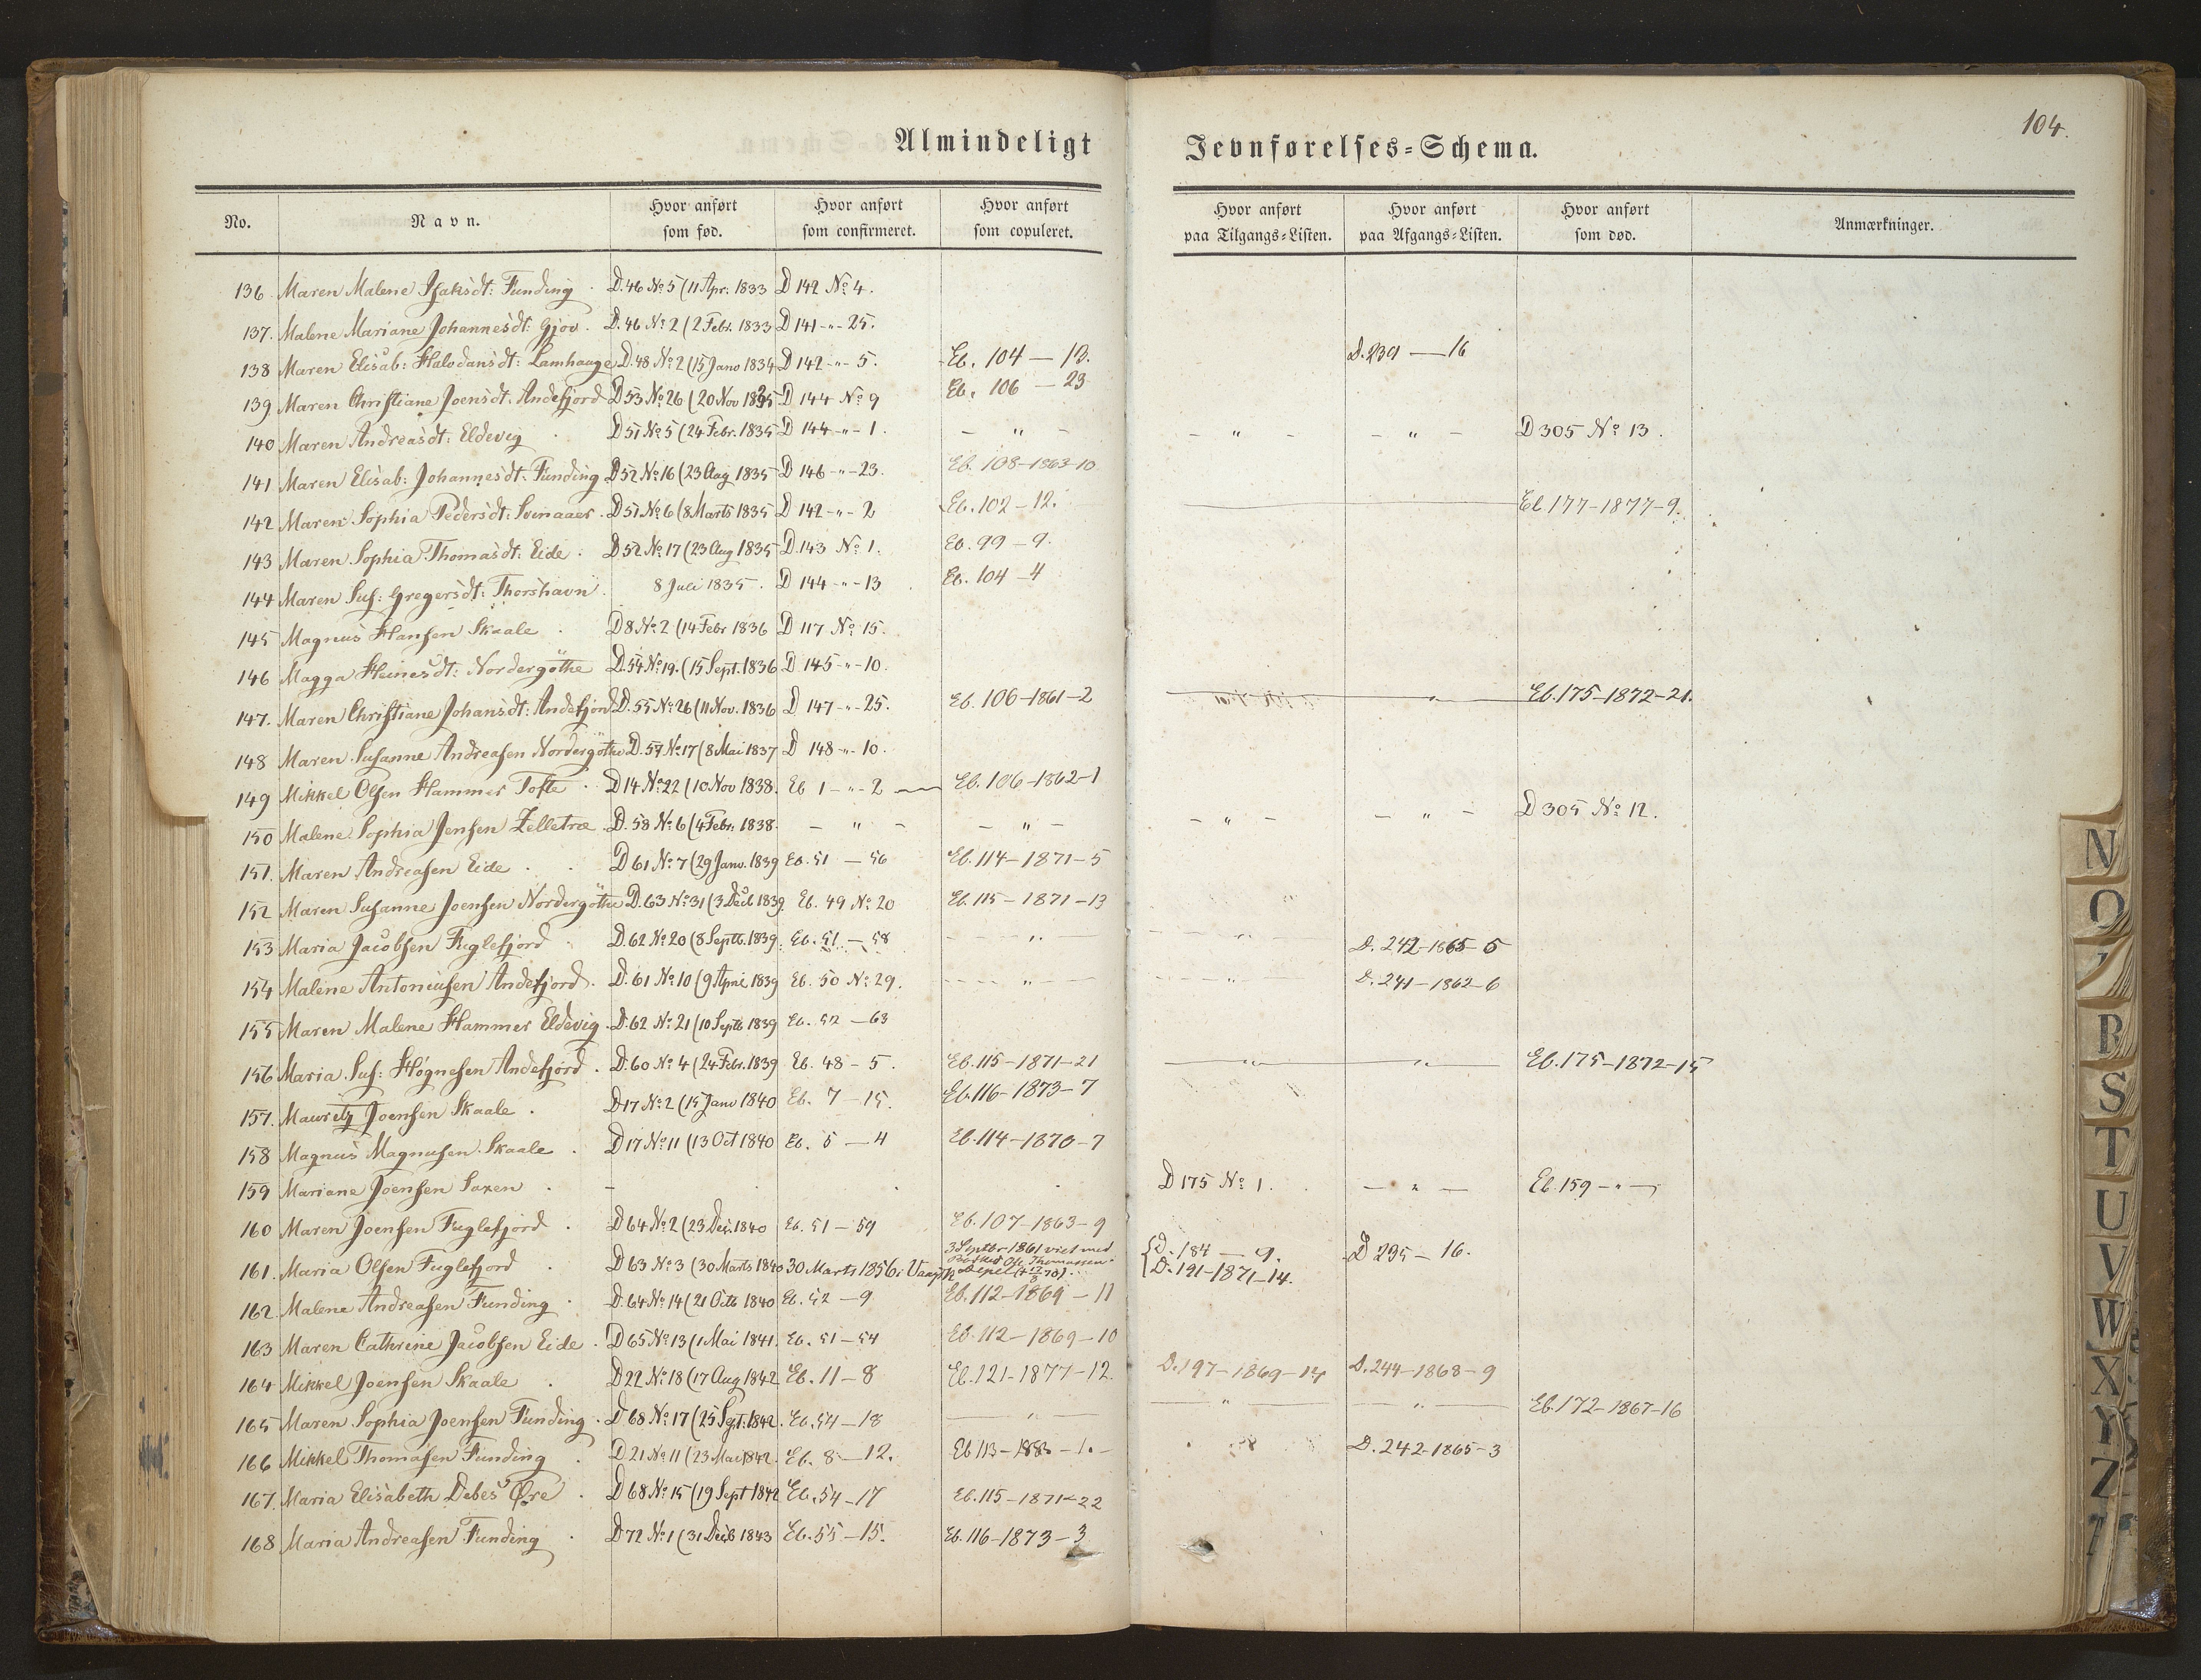 104.
Almindeligt Jevnførelses=Schema.
No. | Navn. | Hvor anført som fød. | Hvor anført som confirmeret. | Hvor anført som copuleret. | Hvor anført paa Tilgangs=Listen. | Hvor anført paa Afgangs=Listen. | Hvor anført som død. | Anmærkninger.
136. Maren Malene Isaksdt: Funding. D.46 No 5 (11 Apr: 1833 D 142 No 4.
137. Malene Mariane Johannesdt: Gjov. D.46 No 2 (2 Febr. 1833 D 141 -"- 25.
138 Maren Elisab: Halvdansdt: Lamhauge D.48 No 2 (15 Janv 1834 D 142 -"- 5. Eb. 104 — 13. D.239 — 16
139 Maren Christiane Joensdt: Andefjord D53 No 26 (20 Nov 1835 D 144 No 9 Eb. 106 — 23
140 Maren Andreasdt: Eldevig D51 No 5 (24 Febr. 1835 D 144 -"- 1. - " - - " - - " - D 305 No 13.
141 Maren Elisab: Johannesdt: Funding D52 No 16 (23 Aug 1835 D 146 -"- 23. Eb. 108-1863-10
142 Maren Sophia Pedersdt: Svinaaer. D51 No 6 (8 Marts 1835 D 142 -"- 2 Eb. 102 - 12. Eb 177-1877-9.
143 Maren Sophia Thomasdt: Eide. D52 No 17 (23 Aug 1835 D.143 No 1. Eb. 99 - 9.
144 Maren Sus: Gregersdt: Thorshavn. 8 Juli 1835. D 144 -"- 13 Eb. 104 - 4
145 Magnus Hansen Skaale. D8 No 2 (14 Febr 1836 D 117 No 15.
146 Magga Heinesdt: Nordergöthe D.54 No 19. (15 Sept. 1836 D 145 -"- 10.
147. Maren Christiane Johansdt: Andefjord D.55 No 26 (11 Nov. 1836 D 147 -"- 25. Eb. 106-1861-2 " Eb. 175-1872-21.
148 Maren Susanne Andreasen Nordergöthe D.57 No 17 (8 Mai 1837 D 148 -"- 10.
149 Mikkel Olsen Hammer Tofte. D14 No 22 (10 Nov 1838. Eb 1 -"- 2 — Eb. 106-1862-1
150 Malene Sophia Jensen Zelletræ. D.58 No 6 (4 Febr. 1838. - " - - " - - " - - " - D 305 No 12.
151. Maren Andreasen Eide. D 61 No 7 (29 Janv. 1839 Eb. 51 — 56 Eb. 114-1871-5
152 Maren Susanne Joensen Nordergöthe D.63 No 31 (3 Decb 1839. Eb. 49 No 20 Eb. 115-1871-13
153 Maria Jacobsen Fuglefjord D.62 No 20 (8 Septb. 1839. Eb. 51 — 58 - " - - " - D. 242-1865-5
154 Malene Antoniusen Andefjord. D.61 No 10 (9 April 1839 Eb. 50 No 29. - " - - " - D. 241-1862-6
155 Maren Malene Hammer Eldevig. D.62 No 21 (10 Septb 1839 Eb. 52 — 63
156 Maria Sus: Høgnesen Andefjord. D.60 No 4 (24 Febr. 1839 Eb. 48 - 5. Eb. 115-1871-21 — " — — " — Eb. 175-1872-15
157. Mauritz Joensen Skaale. D17 No 2 (15 Janv 1840 Eb. 7 - 15. Eb. 116-1873-7
158 Magnus Magnusen Skaale. D17 No 11 (13 Oct 1840 Eb. 5 — 4 Eb. 114-1870-7
159 Mariane Joensen Saxen. - D 175 No 1. — " — Eb. 159 -"- 7
160 Maren Joensen Fuglefjord. D64 No 2 (23 Dec. 1840 Eb. 51 - 59 Eb. 107-1863-9
161. Maria Olsen Fuglefjord. D 63 No 3 (30 Marts 1840 30 Marts 1856 i 3 Septbr 1861 viet med Ole Thomassen { D. 184 — 9. D. 191-1871-14. D 235 - 16.
162 Malene Andreasen Funding. D.64 No 14 (21 Octb 1840 Eb. 52 - 9 Eb. 112-1869-11
163 Maren Cathrine Jacobsen Eide. D65 No 13 (1 Mai 1841. Eb. 51 - 54 Eb. 112-1869-10
164 Mikkel Joensen Skaale. D22 No 18 (17 Aug 1842 Eb. 11 - 8 Eb. 121-1877-12. D. 197-1869-14 D. 244-1868-9
165 Maren Sophia Joensen Funding. D 68 No 17 (25 Spt. 1842. Eb. 54 - 18 — " — — " — — " — Eb. 172-1867-16
166 Mikkel Thomasen Funding. D21 No 11 (23 Mai 1842. Eb. 8 — 12. Eb 113-1883-1. D. 242-1865-3
167. Maria Elisabeth Debes Øre. D68 No 15 (19 Sept 1842 Eb. 54 - 17 Eb. 115-1871-22
168 Maria Andreasen Funding. D72 No 1 (31 Decb 1843 Eb. 55 - 15. Eb. 116-1873-3
N
O
R
S
T
U
V
W
X
Y
Z